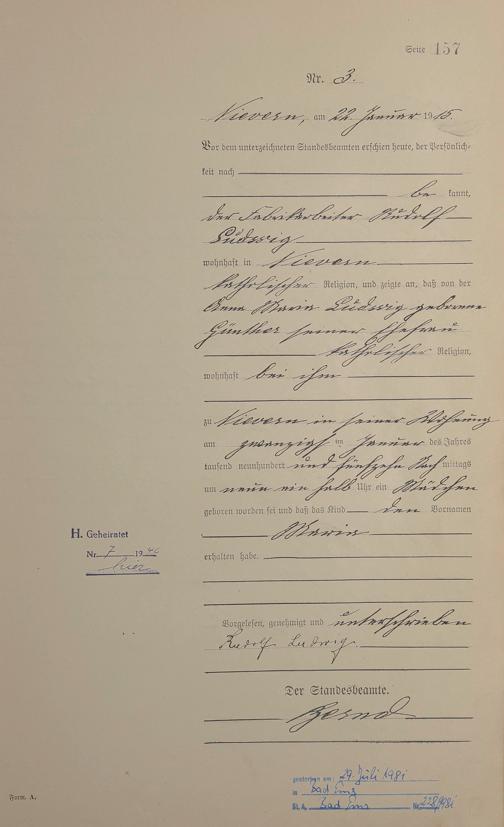 Seite 157
Nr. 3.
Nievern, am 22. Januar 1915.
Vor dem unterzeichneten Standesbeamten erschien heute, der Persönlich-
keit nach
be kannt,
der Fabrikarbeiter Rudolf
Ludwig
wohnhaft in Nievern
katholischer Religion, und zeigte an, daß von der
Anna Maria Ludwig geborene
Günther seiner Ehefrau
katholischer Religion,
wohnhaft bei ihm
zu Nievern in seiner Wohnung
am zwanzigst en Januar des Jahres
tausend neunhundert und fünfzehn Nach mittags
um neun ein halb Uhr ein Mädchen
geboren worden sei und daß das Kind den Vornamen
Maria
H. Geheiratet
Nr. 7 1946
hier
erhalten habe.
Vorgelesen, genehmigt und unterschrieben
Rudolf Ludwig.
Der Standesbeamte.
gestorben am: 29. Juli 1981
in Bad Ems
St. A. Bad Ems Nr. 228/1981
Form. A.